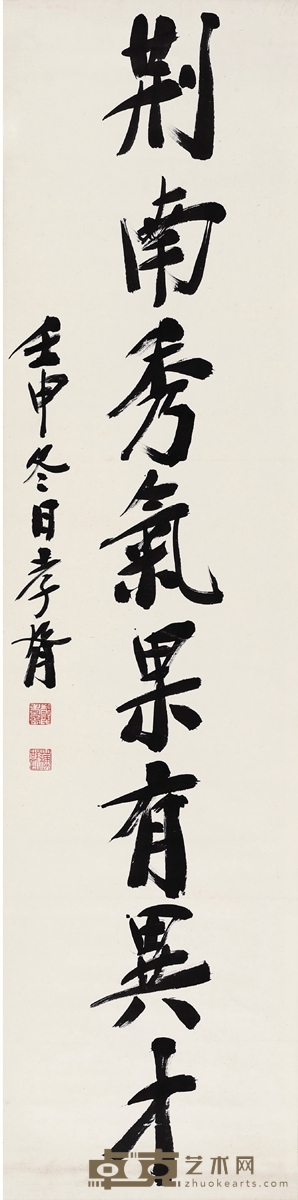 荆南秀氣果有異才
壬申冬日孝胥
卓克艺术网
zhuokearts.com